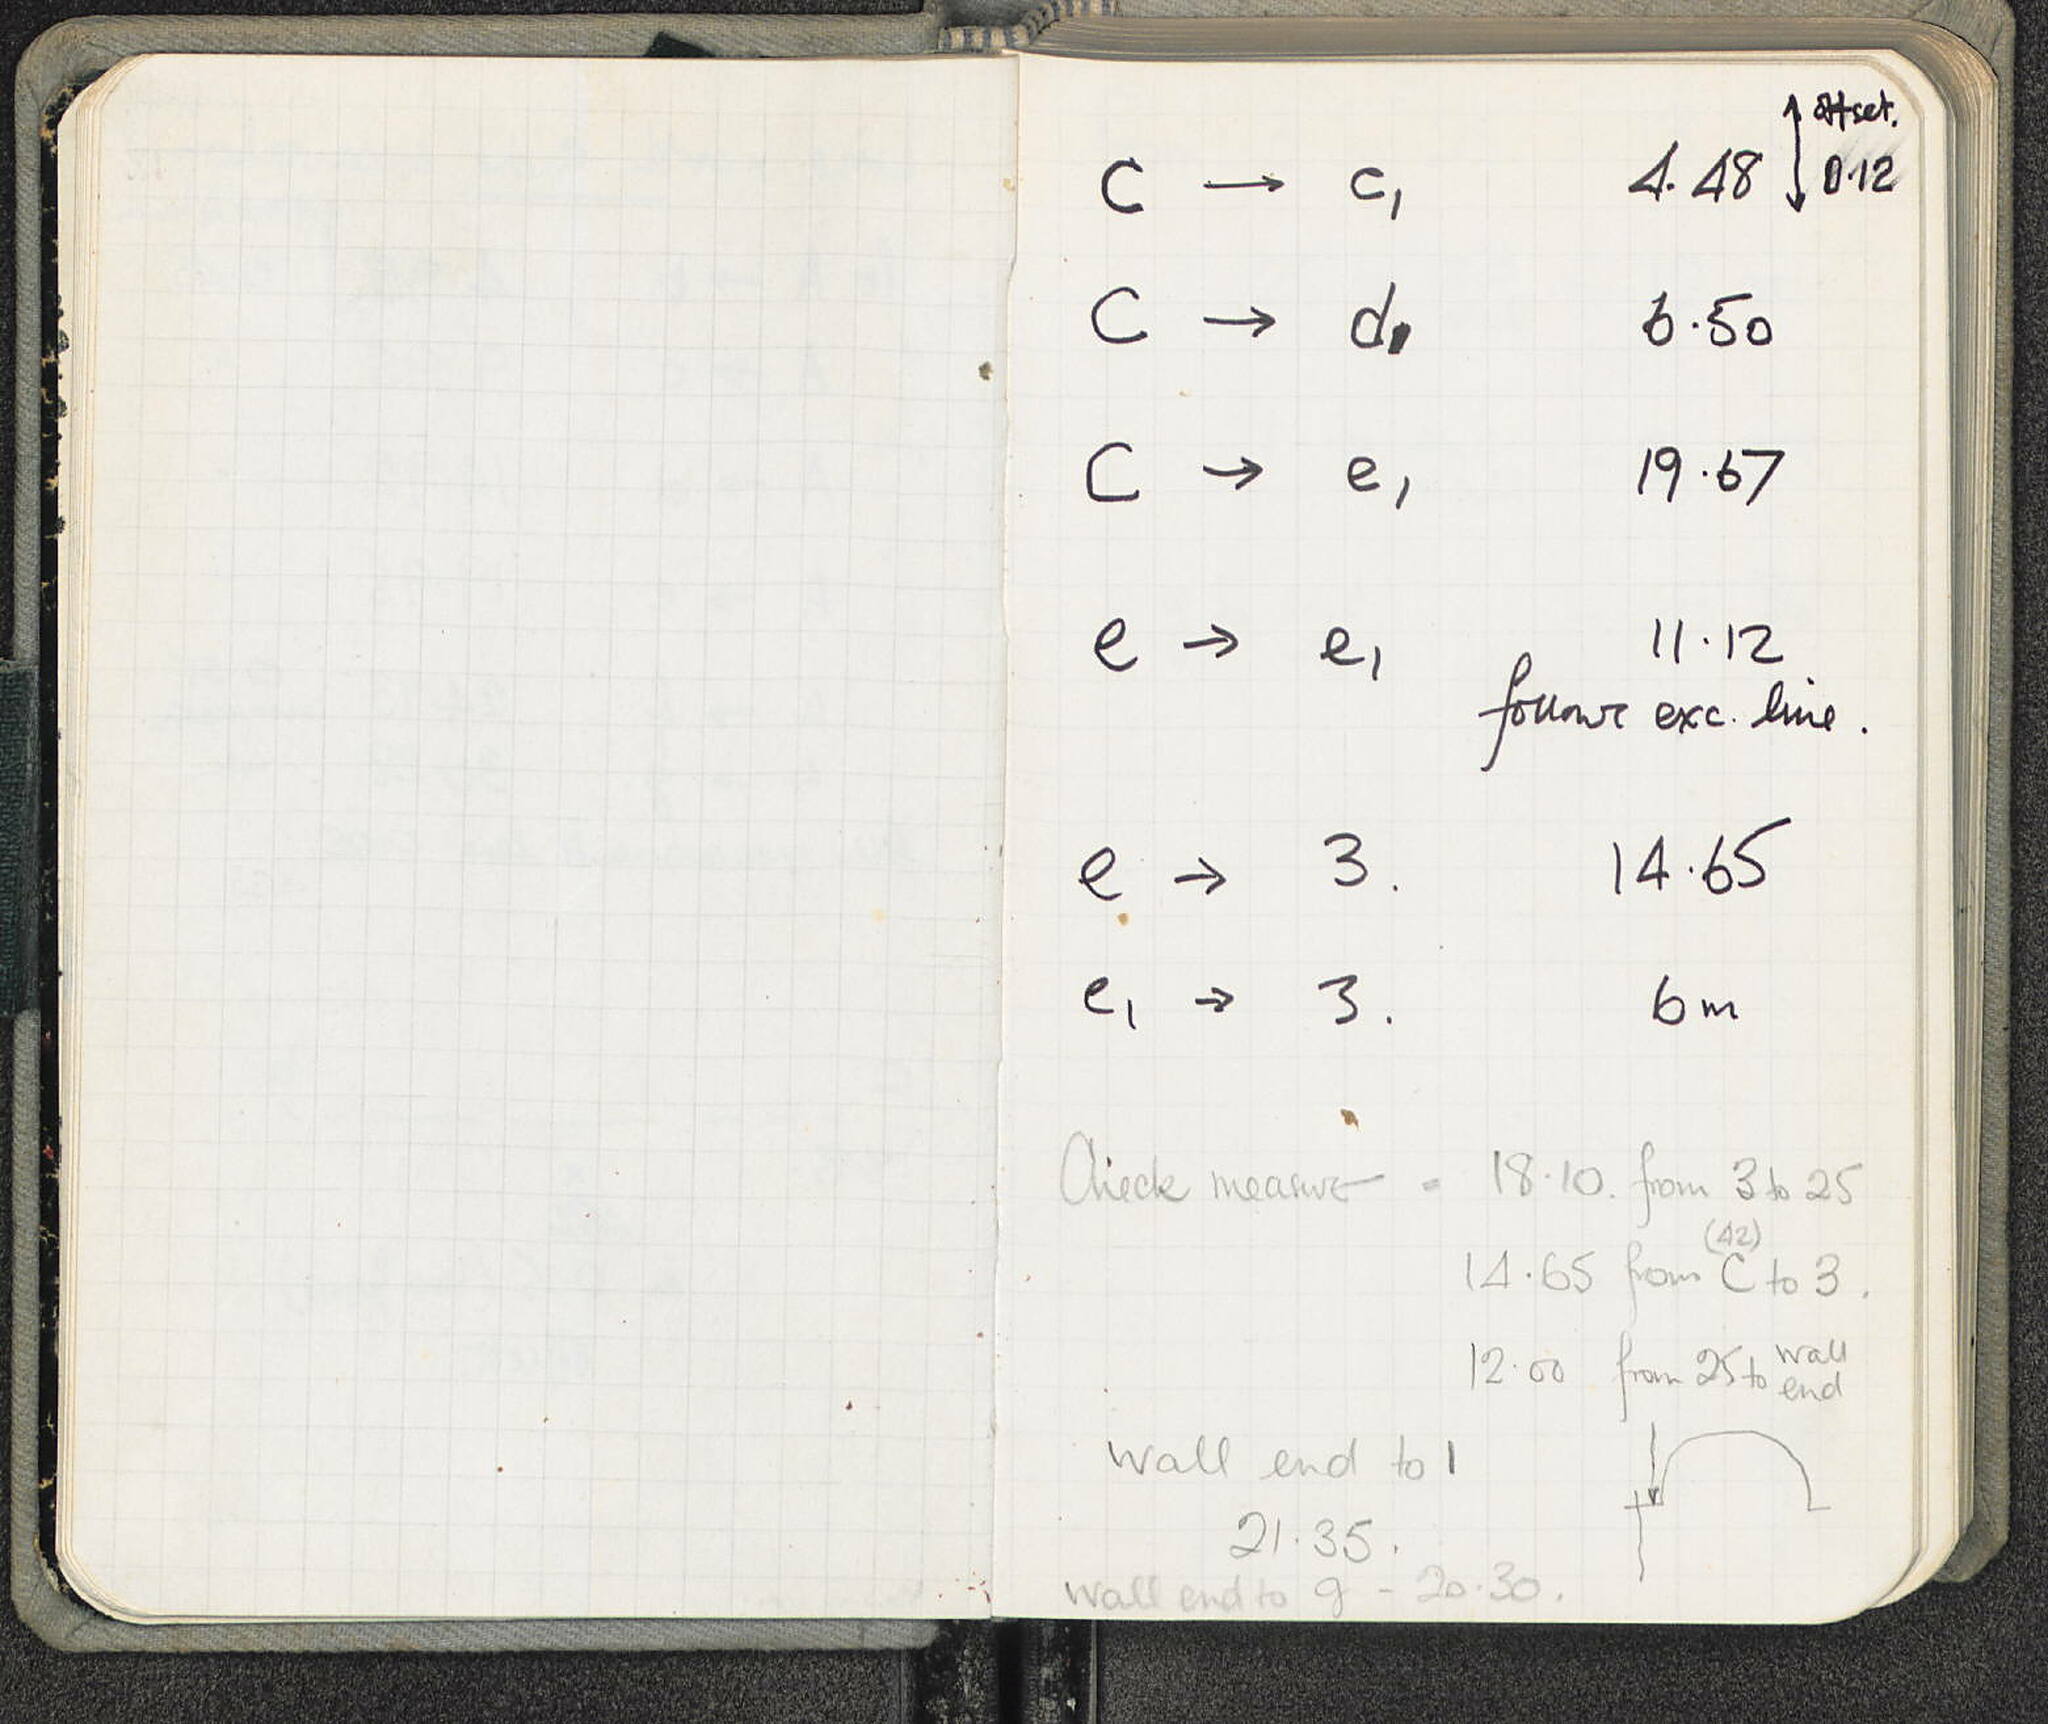 offset.
C → c₁ 4.48 ↕ 0.12
C → d₁ 6.50
C → e₁ 19.67
e → e₁ 11.12
follows exc. line.
e → 3. 14.65
e₁ → 3. 6m
Check measure = 18.10. from 3 to 25
(42)
14.65 from C to 3.
12.00 from 25 to wall end
wall end to 1
21.35.
wall end to g - 20.30.